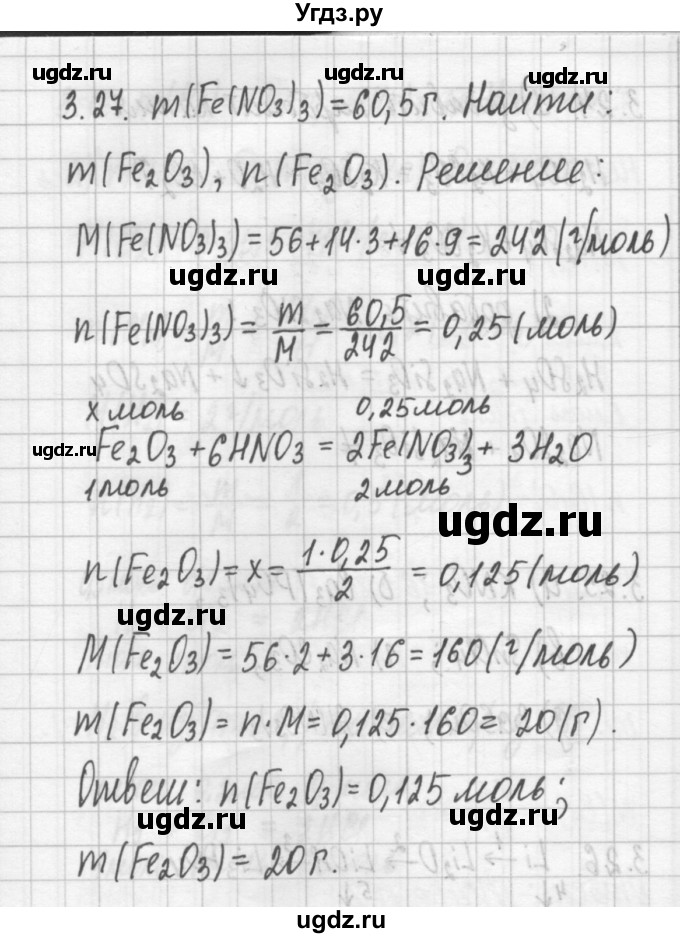 Угдз.ру
ugdz.ru ugdz.ru
3.27. m(Fe(NO₃)₃)=60,5г. Найти:
m(Fe₂O₃), n(Fe₂O₃). Решение:
M(Fe(NO₃)₃)=56+14·3+16·9=242(г/моль)
ugdz.ru ugdz.ru
n(Fe(NO₃)₃)= m/M = 60,5/242 = 0,25(моль)
x моль 0,25моль
ugdz.ru Fe₂O₃ +6HNO₃ = 2Fe(NO₃)₃+ 3H₂O
1моль 2моль
ugdz.ru
n(Fe₂O₃)=x= 1·0,25/2 = 0,125(моль)
ugdz.ru
M(Fe₂O₃)=56·2+3·16=160(г/моль)
m(Fe₂O₃)=n·M=0,125·160= 20(г).
Ответ: n(Fe₂O₃)=0,125моль;
ugdz.ru ugdz.ru
m(Fe₂O₃)= 20г.
ugdz.ru